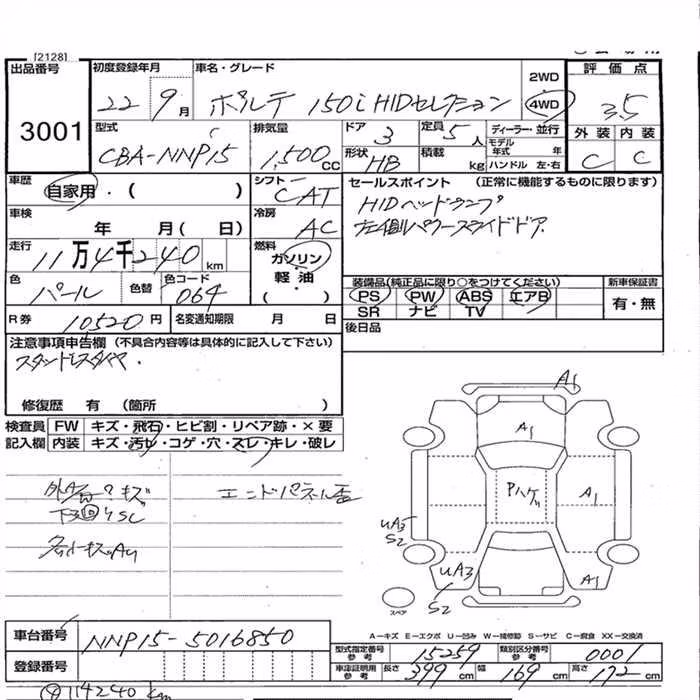 [2128]
出品番号 初度登録年月 車名・グレード 2WD 評価点
3001 22 9月 ポルテ 150i HIDセレクション 4WD 3.5
型式 排気量 ドア 3 定員 5人 ディーラー・並行 外装 内装
CBA-NNP15 1,500cc 形状 HB 積載 kg モデル年式 年 ハンドル 左・右 C C
車歴 自家用・( ) シフト CAT セールスポイント (正常に機能するものに限ります)
車検 年 月( 日) 冷房 AC HIDヘッドランプ
左側パワースライドドア
走行 11万4千240km 燃料 ガソリン 軽・油 ・( )
色 パール 色替 色コード 064 装備品(純正品に限り○をつけてください) 新車保証書
PS PW ABS エアB 有・無
SR ナビ TV
R券 10520円 名変通知期限 月 日 後日品
注意事項申告欄 (不具合内容等は具体的に記入して下さい)
スタッドレスタイヤ.
修復歴 有 (箇所 )
検査員 FW キズ・飛石・ヒビ割・リペア跡・×要
記入欄 内装 キズ・汚レ・コゲ・穴・スレ・キレ・破レ
A1
A1
A1
UA3
S2
UA3
S2
A1
スペア
A-キズ E-エクボ U-凹み W-補修跡 S-サビ C-腐食 XX-交換済
車台番号 NNP15-5016850
型式指定番号 参考 15259 類別区分番号 参考 0001
登録番号 車庫証明用 参考 長さ 399cm 幅 169cm 高さ 172cm
114240 km